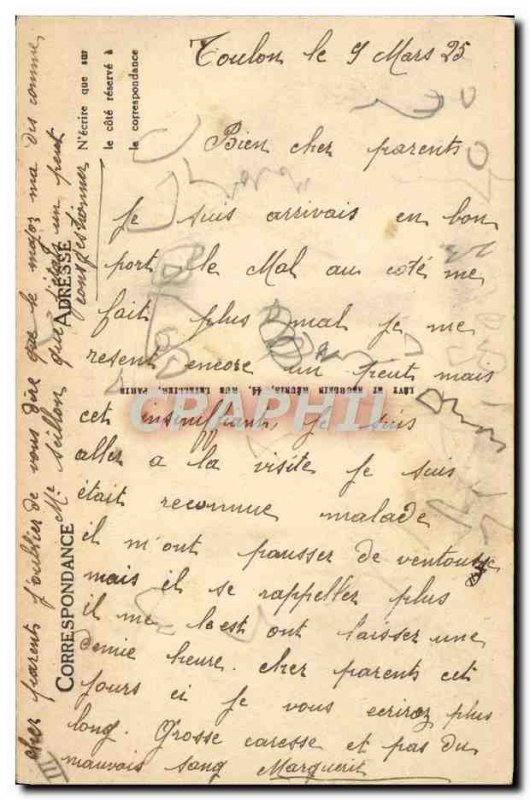 Toulon le 9 Mars 25
Bien cher parents
Je suis arrivais en bon
port le Mal au coté me
fait plus mal je me
resent encore un peut mais
cet insinifiant, je suis
aller a la visite je suis
était reconnue malade
il m'ont pausser de ventouse
mais il se rappeller plus
il me les ont laisser une
demie heure. cher parents cet
jours ci je vous ecrirez plus
long. Grosse caresse et pas du
mauvais sang Marguerit
cher parents j'oublier de vous dire que le major ma dis comme
Mr seillon que j'étais un peut
N'écrire que sur
le côté réservé à
la correspondance
ADRESSE
CORRESPONDANCE
LÉVY ET NEURDEIN RÉUNIS, 44, RUE LETELLIER, PARIS
CRAPHIL
III